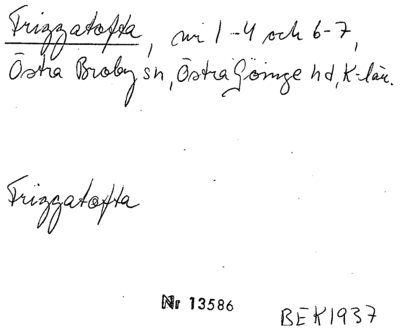 Frizzatofta, nr 1-4 och 6-7,
Östra Broby sn, Östra Göinge hd, K-län.
Frizzatofta
Nr 13586
BEK 1937